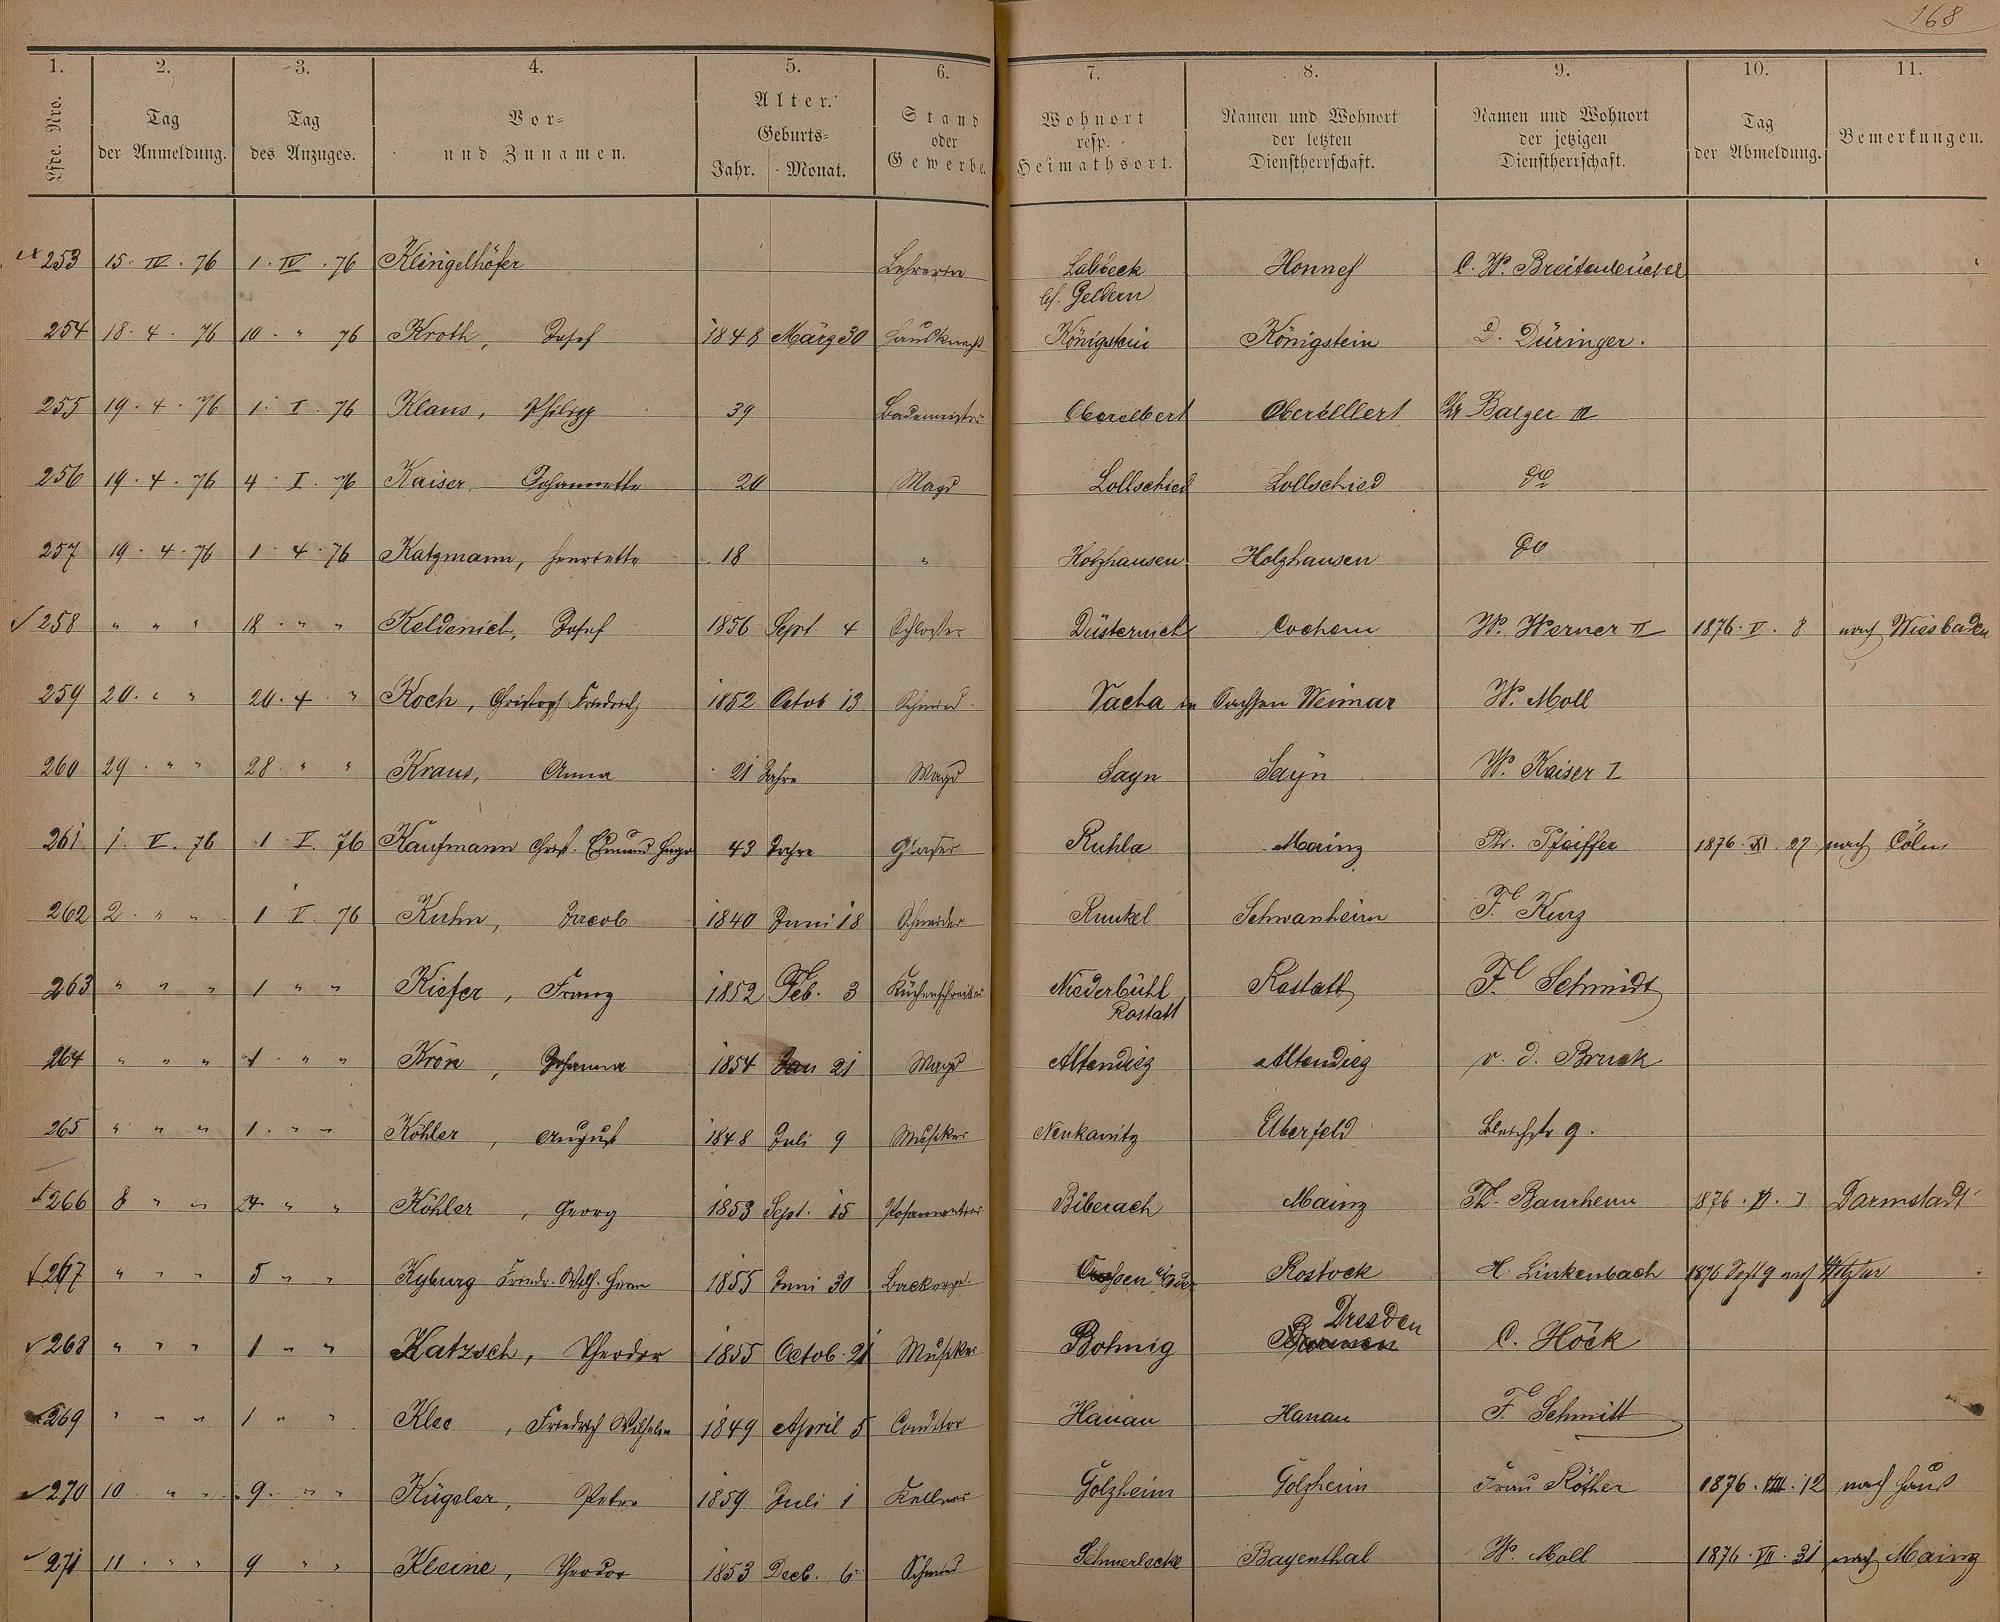 168
1. 2. 3. 4. 5. 6. 7. 8. 9. 10. 11.
Lfde. Nro. Tag der Anmeldung. Tag des Anzuges. Vor- und Zunamen. Alter. Geburts- Jahr. Monat. Stand oder Gewerbe. Wohnort resp. Heimathsort. Namen und Wohnort der letzten Dienstherrschaft. Namen und Wohnort der jetzigen Dienstherrschaft. Tag der Abmeldung. Bemerkungen.
253 15. IV. 76 1. IV. 76 Klingelhöfer Lehrerin Labbeck Honnef C. W.
Geldern
254 18. 4. 76 10. " 76 Kroth, Josef 1848 März 30 Hausknecht Königstein Königstein D. Düringer.
255 19. 4. 76 1. I. 76 Klaus, Philipp 39 Bademeister Oberelbert Oberellert Balzer III
256 19. 4. 76 4. I. 76 Kaiser, Johannette 20 Magd Lollschied Lollschied do
257 19. 4. 76 1. 4. 76 Katzmann, Henriette 18 " Holzhausen Holzhausen do
258 " " " 18. " " Keldenich, Josef 1856 Sept. 4 Schlosser Cochem W. Werner II 1876. V. 8 nach Wiesbaden
259 20. " " 20. 4. " Koch, Christoph Friedrich 1852 Octob 13 Schmied Vacha in Sachsen Weimar W. Moll
260 29. " " 28. " " Kraus, Anna 21 Jahre Magd Sayn Sayn W. Kaiser I
261 1. V. 76 1. V. 76 Kaufmann Christ. Edmund Hugo 43 Jahre Glaser Ruhla Mainz Pfeiffer 1876. XI. 27 nach Cöln
262 2. " " 1 V. 76 Kuhn, Jacob 1840 Juni 18 Schneider Runkel Schwanheim F. Kurz
263 " " " 1 " " Kiefer, Franz 1852 Feb. 3 Küchenschreiber Niederbühl Rastatt F. Schmidt
Rastatt
264 " " " 1. " " Krön, Johanna 1854 Jan 21 Magd Altendiez Altendiez v. d. Bruck
265 " " " 1. " " Köhler, August 1848 Juli 9 Musiker Neukanitz Elberfeld 9.
266 8 " " 24 " " Köhler, Georg 1853 Sept. 15 Biberach Mainz Baurhenn 1876. Darmstadt
267 " " " 5 " " Kyburg Friedr. Wilh. Herm 1855 Juni 30 Rostock H. Linkenbach 1876 Sept 9 nach Wetzlar
Dresden
268 " " " 1 " " Katzsch, Theodor 1855 Octob. 21 Musiker Bohnig C. Höck
269 " " " 1 " " Klee, Friedrich Wilhelm 1849 April 5 Conditor Hanau Hanau F. Schmitt
270 10 " " 9. " " Kügeler, Peter 1859 Juli 1 Kellner Golzheim Golzheim Frau Röther 1876. VIII. 12 nach Haus
271 11. " " 9 " " Kleine, Theodor 1853 Decb. 6 Schmied Schmerlecke Bayenthal W. Moll 1876. VII. 31 nach Mainz